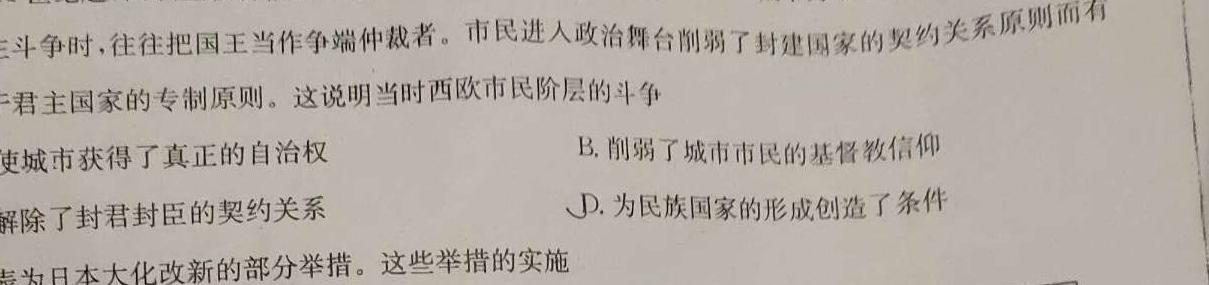 斗争时,往往把国王当作争端仲裁者。市民进入政治舞台削弱了封建国家的契约关系原则而有
君主国家的专制原则。这说明当时西欧市民阶层的斗争
使城市获得了真正的自治权 B. 削弱了城市市民的基督教信仰
解除了封君封臣的契约关系 D. 为民族国家的形成创造了条件
表为日本大化改新的部分举措。这些举措的实施